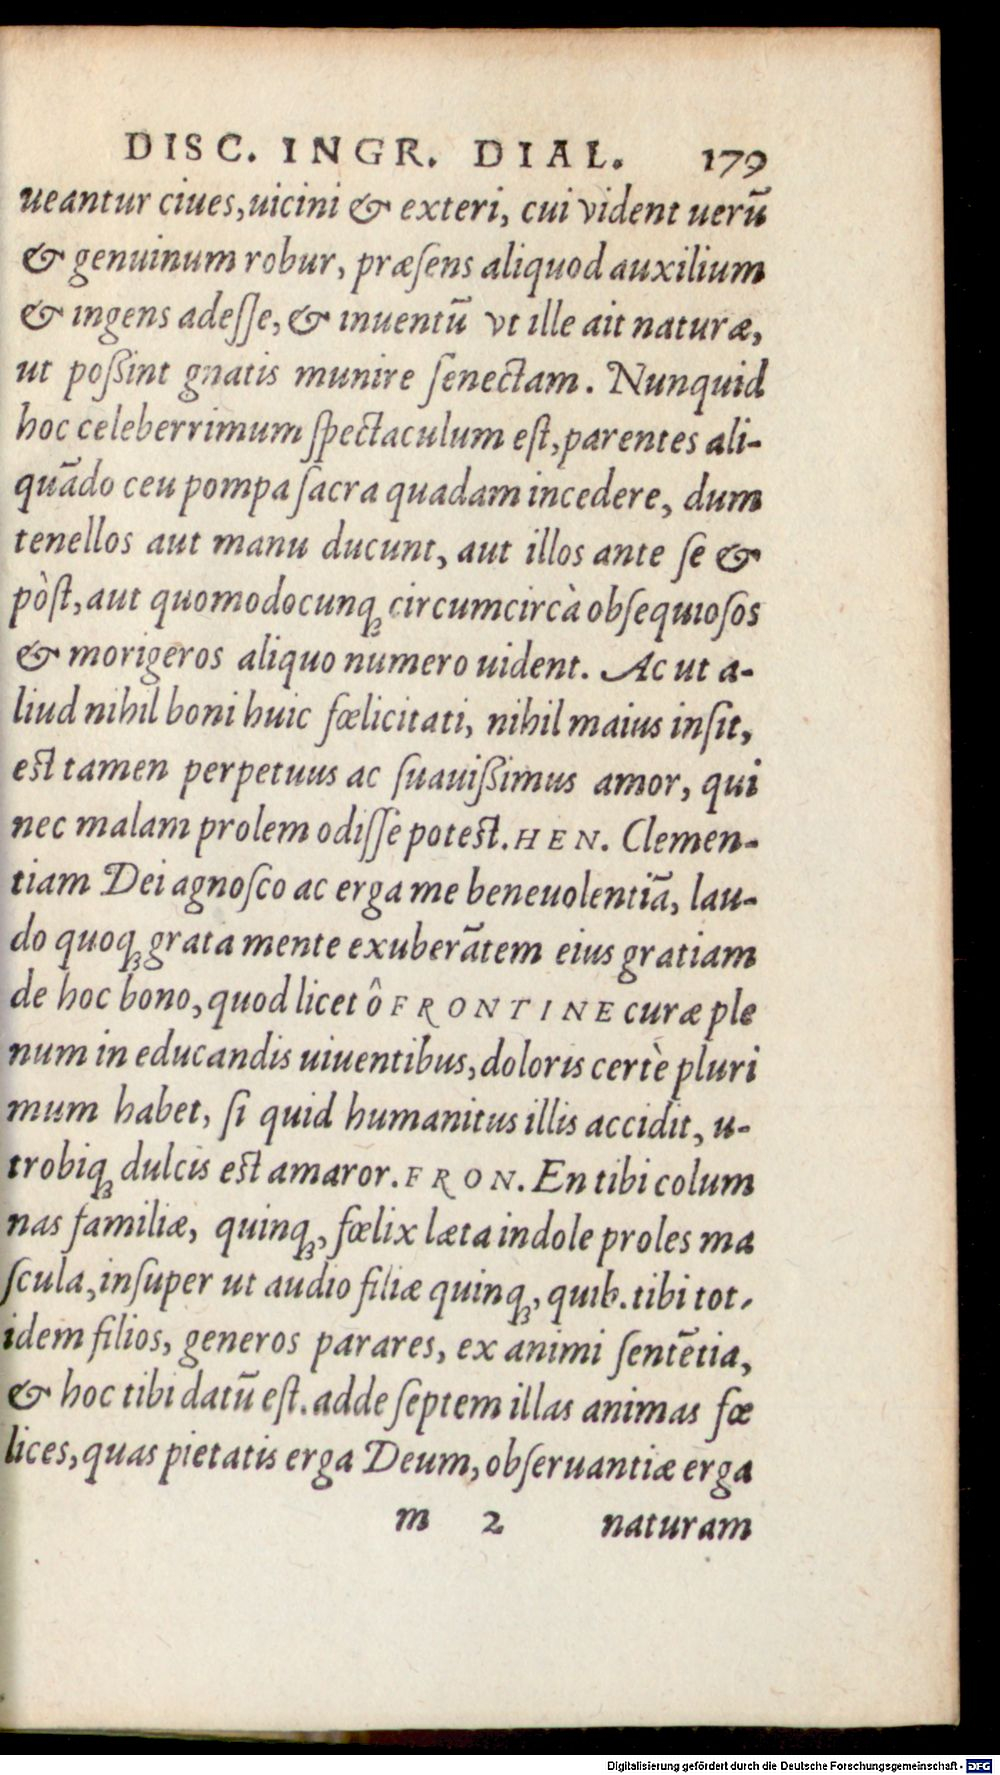 DISC. INGR. DIAL. 179
ueantur ciues, uicini & exteri, cui vident uerũ
& genuinum robur, præſens aliquod auxilium
& ingens adeſſe, & inuentũ vt ille ait naturæ,
ut poßint gnatis munire ſenectam. Nunquid
hoc celeberrimum ſpectaculum eſt, parentes ali-
quãdo ceu pompa ſacra quadam incedere, dum
tenellos aut manu ducunt, aut illos ante ſe &
pòſt, aut quomodocunqꝫ circumcircà obſequioſos
& morigeros aliquo numero uident. Ac ut a-
liud nihil boni huic fœlicitati, nihil maius inſit,
eſt tamen perpetuus ac ſuauißimus amor, qui
nec malam prolem odiſſe poteſt. HEN. Clemen-
tiam Dei agnoſco ac erga me beneuolentiã, lau-
do quoqꝫ grata mente exuberãtem eius gratiam
de hoc bono, quod licet ô FRONTINE curæ ple
num in educandis uiuentibus, doloris certè pluri
mum habet, ſi quid humanitus illis accidit, u-
trobiqꝫ dulcis eſt amaror. FRON. En tibi colum
nas familiæ, quinqꝫ, fœlix læta indole proles ma
ſcula, inſuper ut audio filiæ quinqꝫ, quib. tibi tot-
idem filios, generos parares, ex animi ſentẽtia,
& hoc tibi datũ eſt. adde ſeptem illas animas fœ
lices, quas pietatis erga Deum, obſeruantiæ erga
m 2 naturam
Digitalisierung gefördert durch die Deutsche Forschungsgemeinschaft - DFG